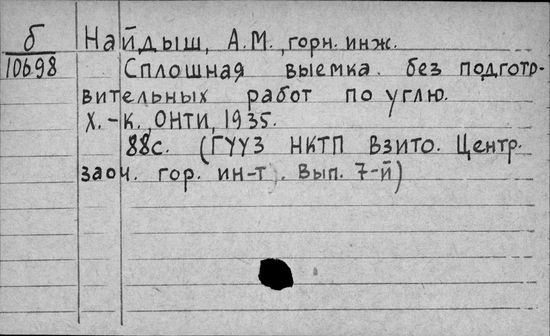 б
10698
Найдыш, А.М., горн. инж.
Сплошная выемка без подготр-
вительных работ по углю.
Х.-К., ОНТИ, 1935.
88с. (ГУУЗ НКТП ВЗИТО. Центр.
заоч. гор. ин-т. Вып. 7-й)